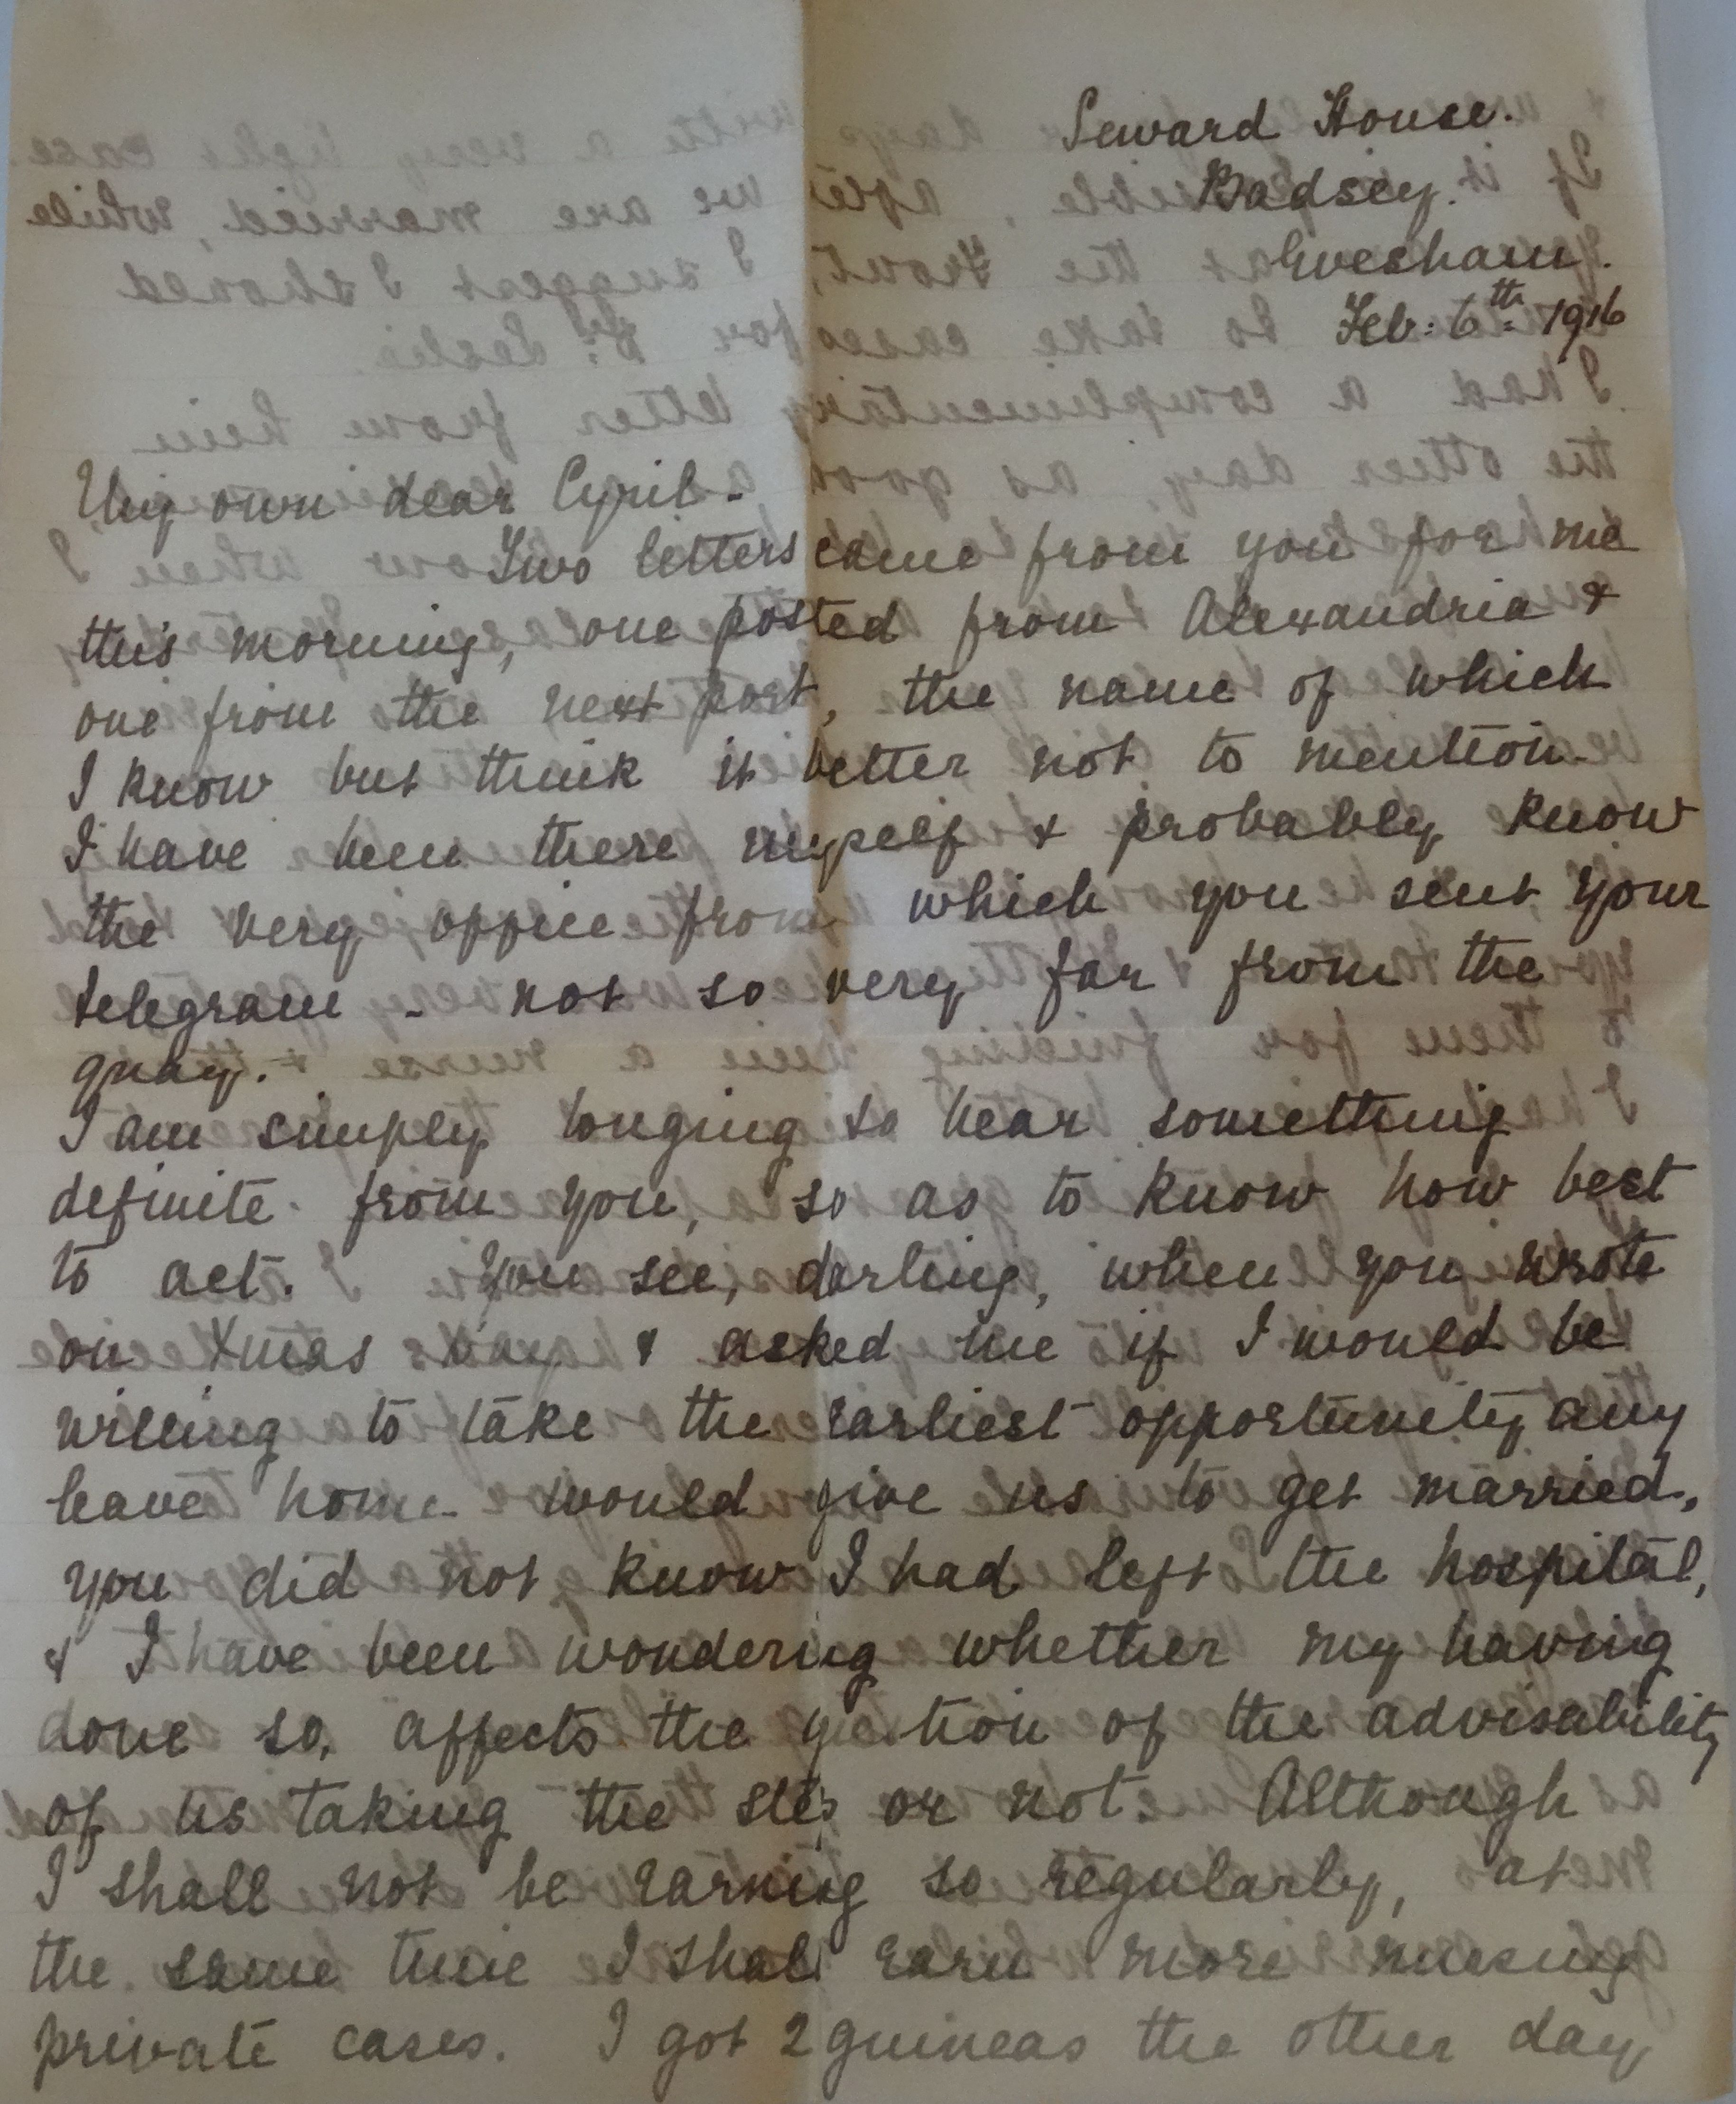 Seward House.
Badsey.
Evesham.
Feb: 6th: 1916
My own dear Cyril -
Two letters came from you for me
this morning, one posted from Alexandria &
one from the next port, the name of which
I know but think it better not to mention.
I have been there myself & probably know
the very office from which you sent your
telegram - not so very far from the
quay.
I am simply longing to hear something
definite from you, so as to know how best
to act. You see, darling, when you wrote
on Xmas Day & asked me if I would be
willing to take the earliest opportunity any
leave home would give us to get married,
you did not know I had left the hospital,
& I have been wondering whether my having
done so, affects the q tion of the advisability
of us taking the step or not. Although
I shall not be earning so regularly, at
the same time I shall earn more nursing
private cases. I got 2 guineas the other day